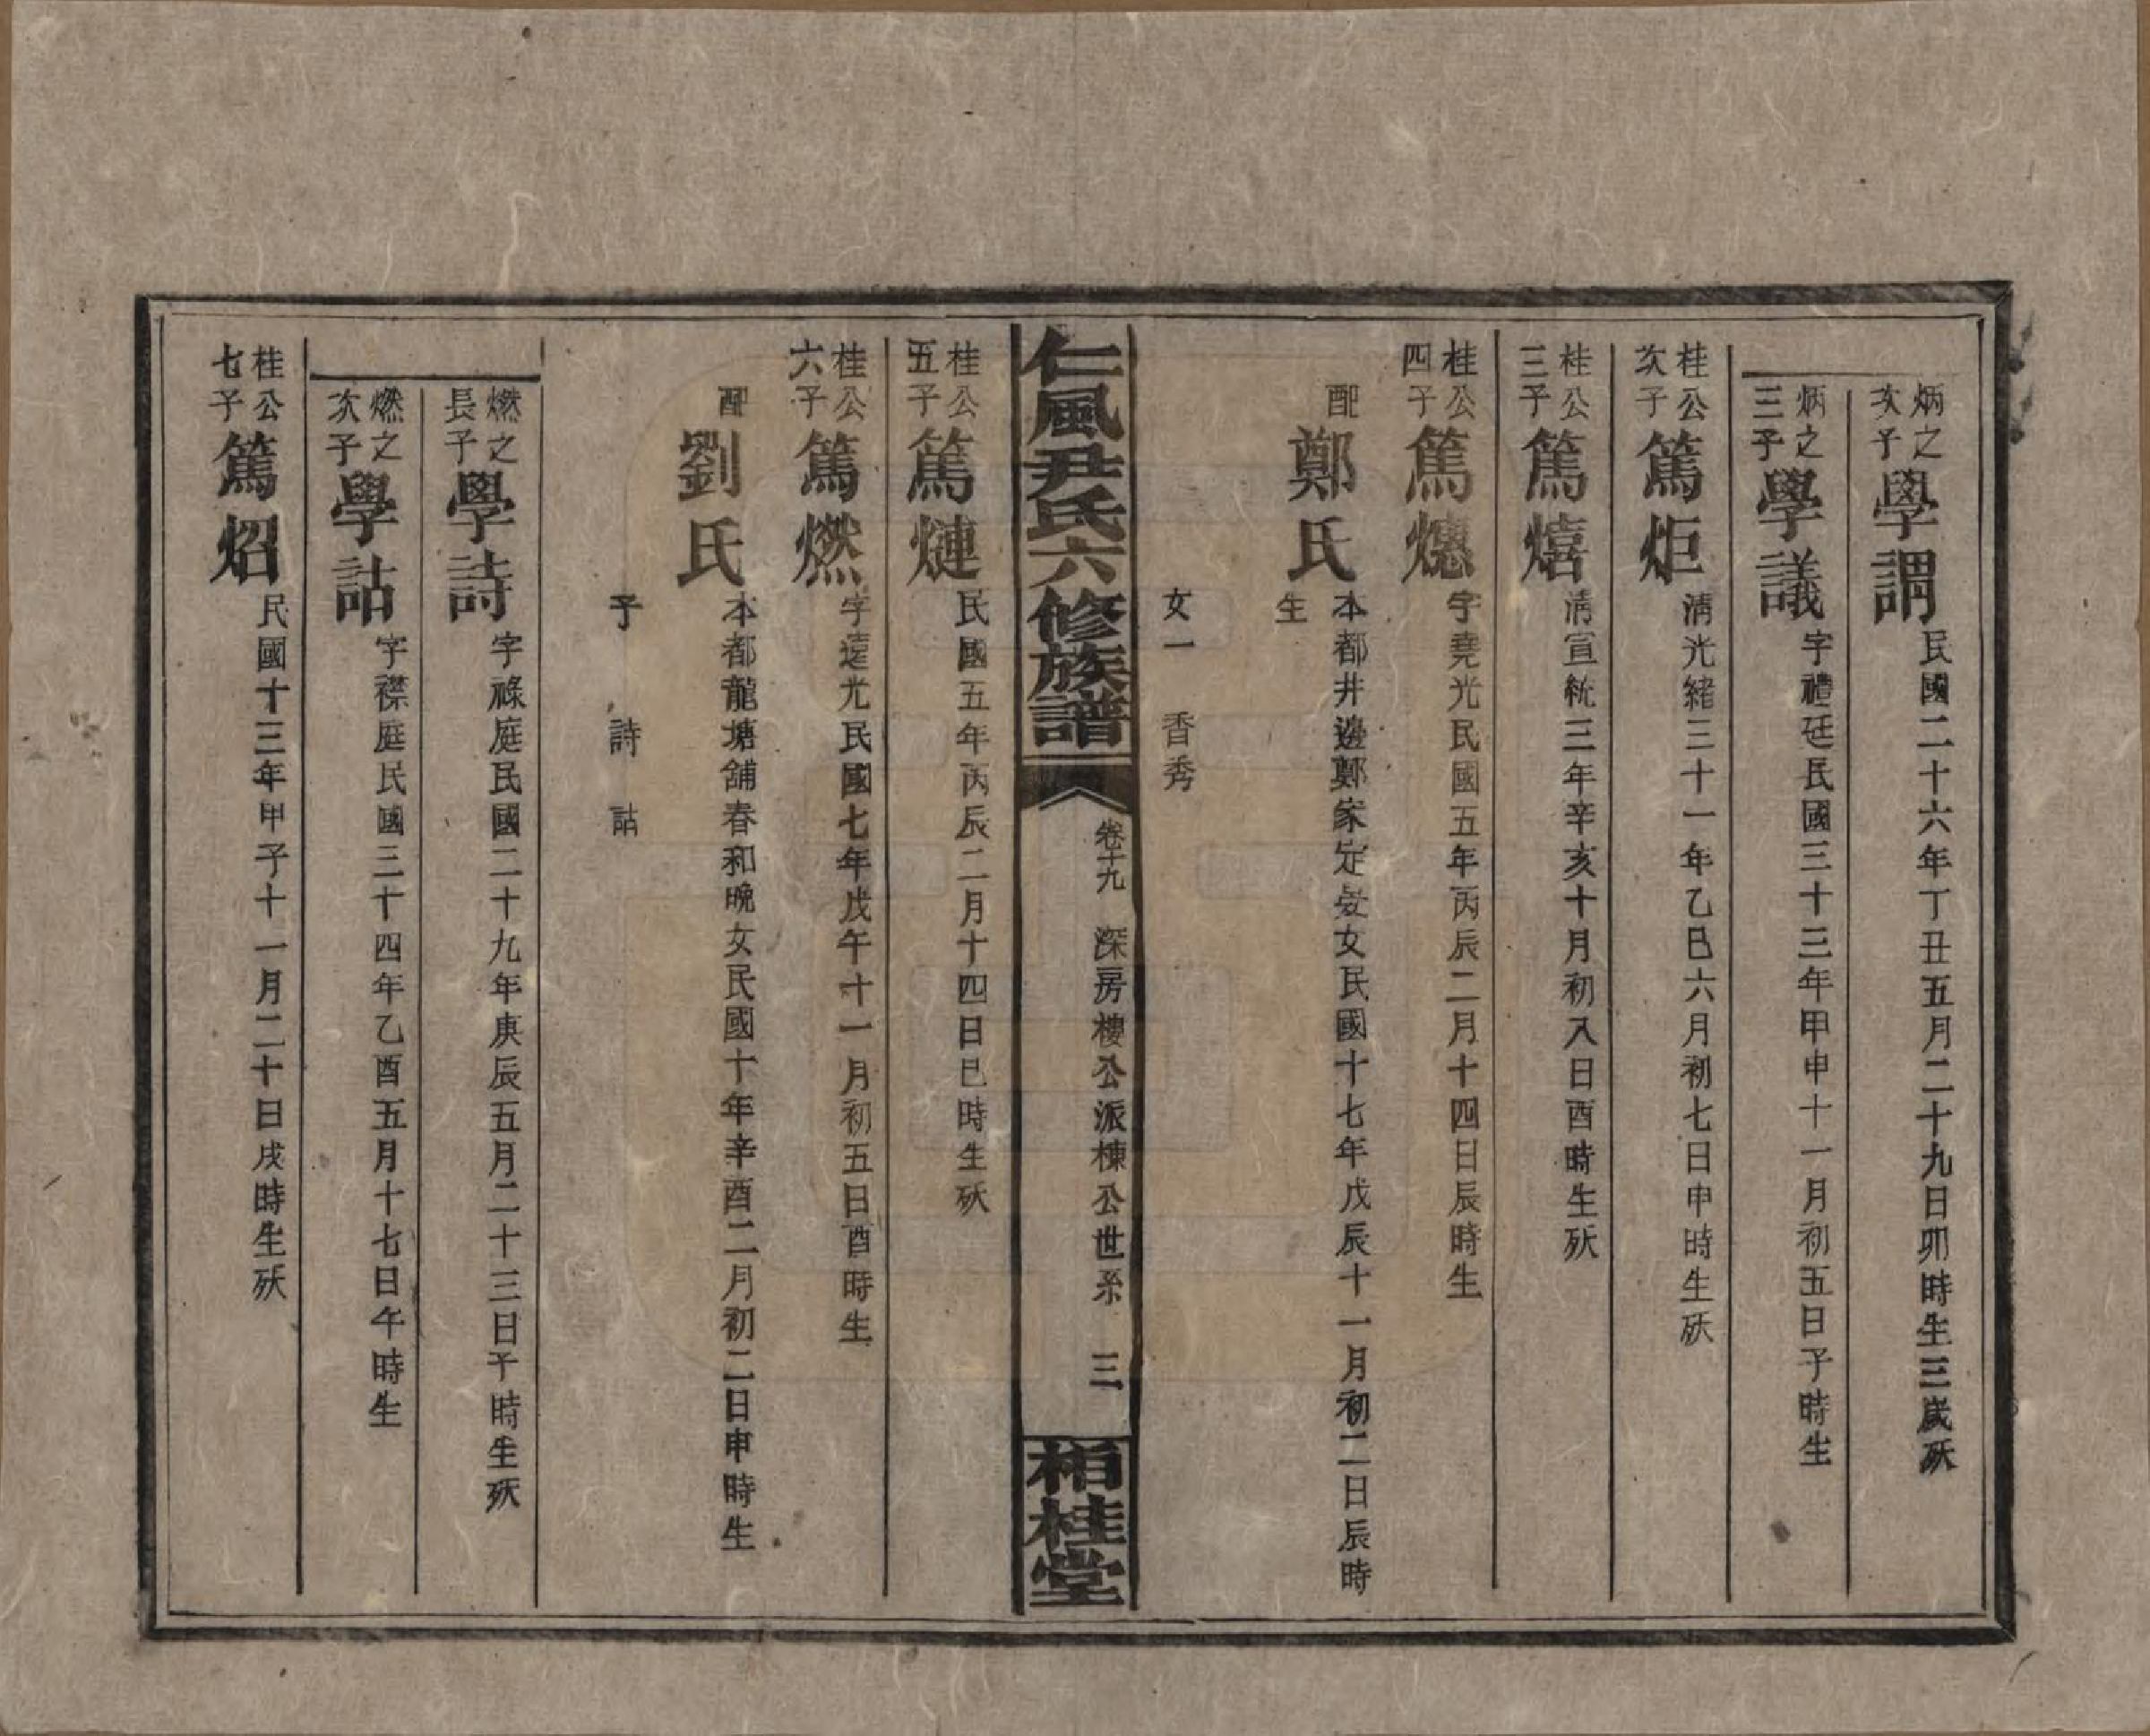 炳之次子學謂民國二十六年丁丑五月二十九日卯時生三歲殀
炳之三子學議字禮廷民國三十三年甲申十一月初五日子時生
桂公次子篤炬淸光緒三十一年乙巳六月初七日申時生殀
桂公三子篤熺淸宣統三年辛亥十月初八日酉時生殀
桂公四子篤㷰字堯光民國五年丙辰二月十四日辰時生
配鄭氏本都井邊鄭家定安女民國十七年戊辰十一月初二日辰時
生
女一 香秀
仁風尹氏六修族譜 卷十九 深房樓公派棟公世系 三 栢桂堂
桂公五子篤熑民國五年丙辰二月十四日巳時生殀
桂公六子篤燃字遠光民國七年戊午十一月初五日酉時生
配劉氏本都龍塘舖春和晚女民國十年辛酉二月初二日申時生
子 詩 詁
燃之長子學詩字祿庭民國二十九年庚辰五月二十三日子時生殀
燃之次子學詁字襟庭民國三十四年乙酉五月十七日午時生
桂公七子篤炤民國十三年甲子十一月二十日戌時生殀